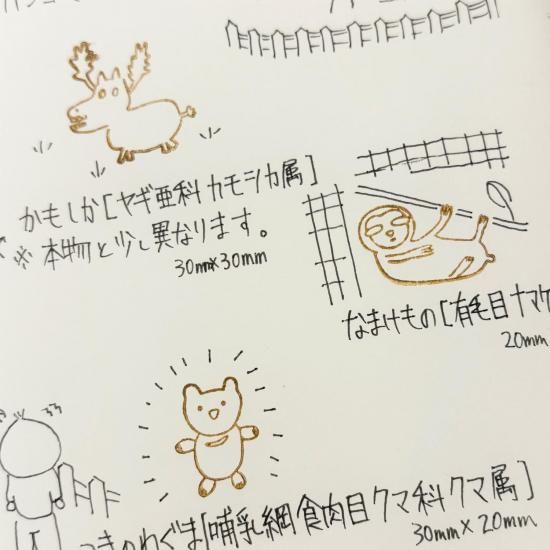 かもしか[ヤギ亜科カモシカ属]
※本物と少し異なります。
30mm×30mm
なまけもの[有毛目ナマケ
20mm
きのわぐま[哺乳綱食肉目クマ科クマ属]
30mm×20mm